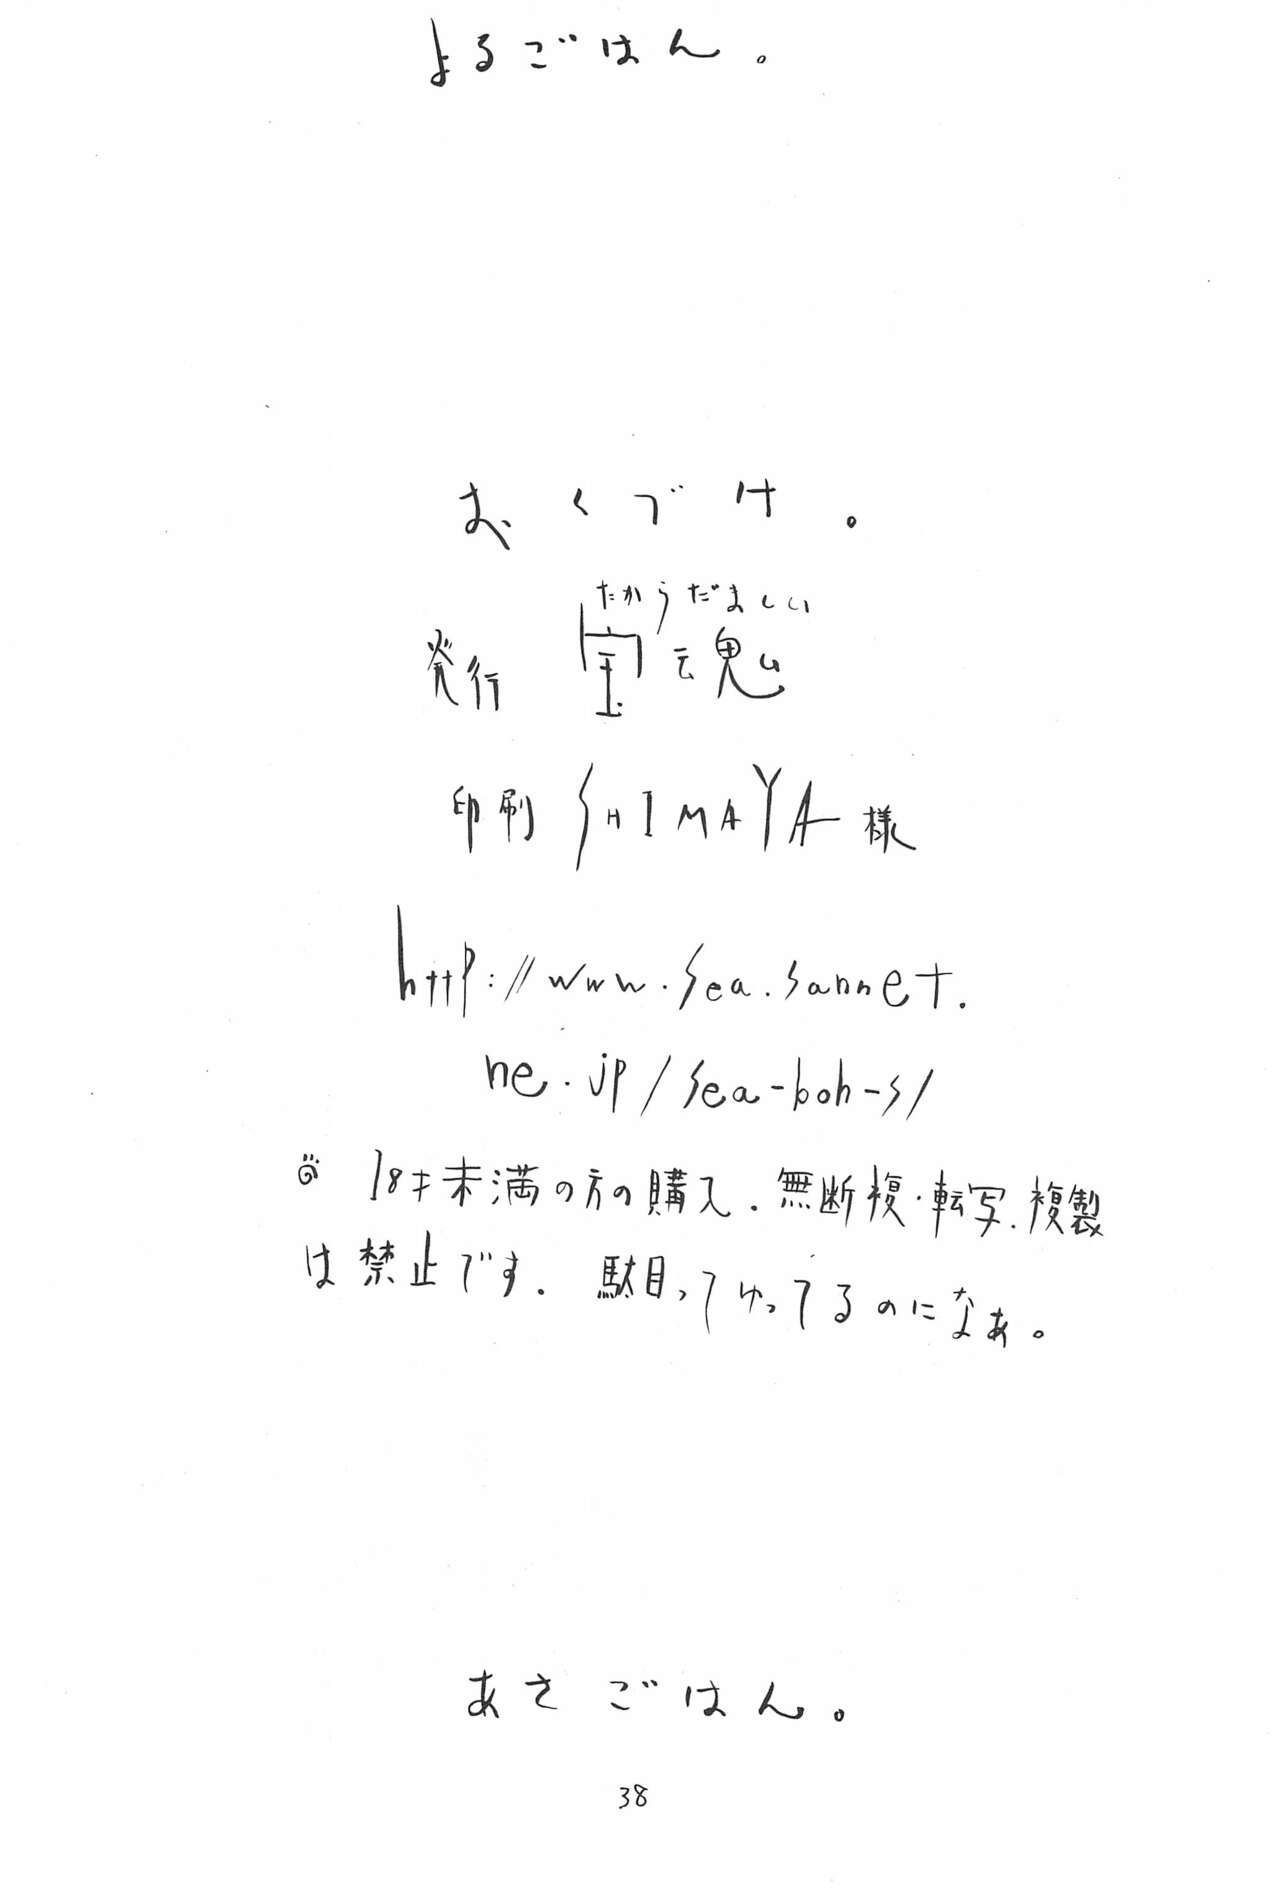 よるごはん。
おくづけ。
たからだましい
発行 宝魂
印刷 SHIMAYA様
http://www.sea.sannet.
ne.jp/sea-boh-s/
18才未満の方の購入.無断複・転写.複製
は禁止です. 駄目ってゆってるのになぁ。
あさごはん。
38